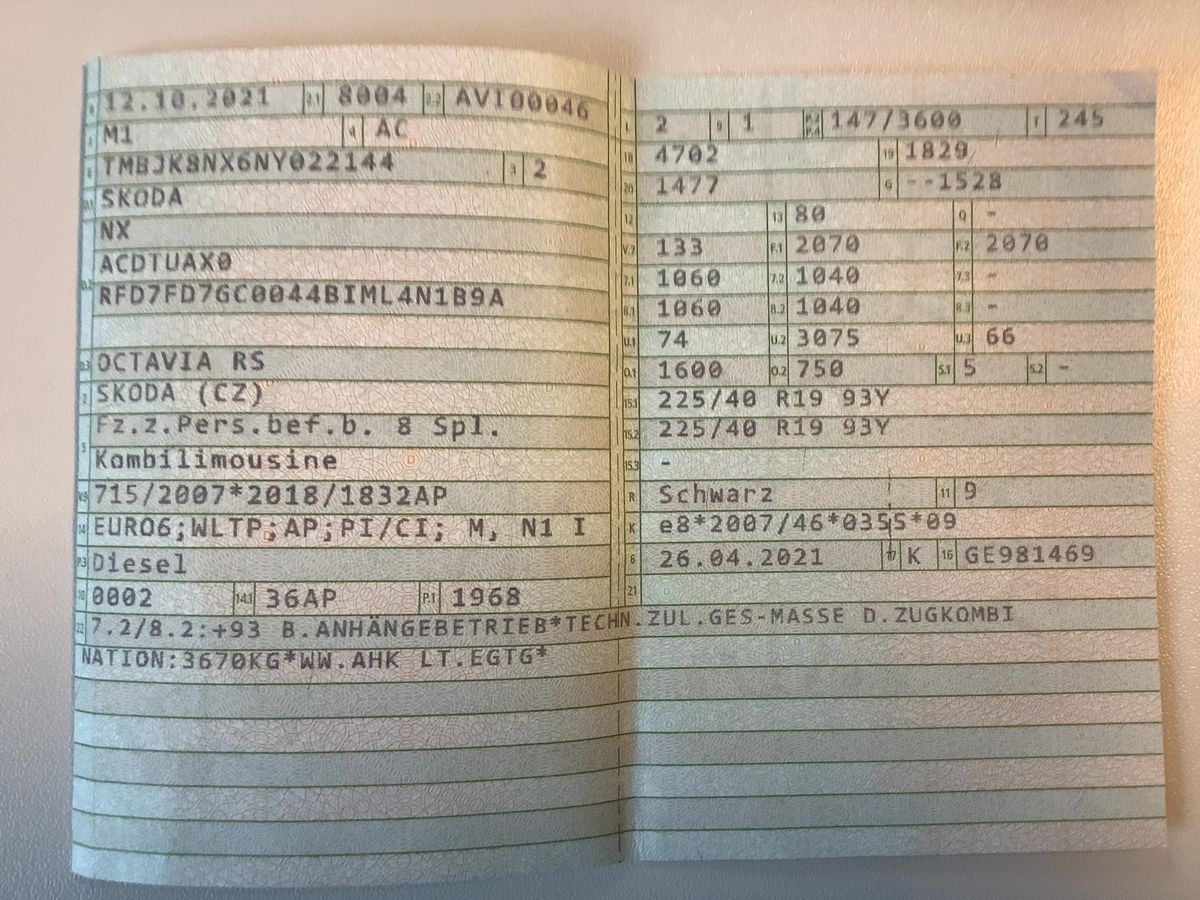 B 12.10.2021 2.1 8004 2.2 AVI00046
J M1 4 AC
E TMBJK8NX6NY022144 3 2
D.1 SKODA
NX
ACDTUAX0
D.2 RFD7FD7GC0044BIML4N1B9A
D.3 OCTAVIA RS
2 SKODA (CZ)
5 Fz.z.Pers.bef.b. 8 Spl.
Kombilimousine
V.9 715/2007*2018/1832AP
14 EURO6;WLTP;AP;PI/CI; M, N1 I
P.3 Diesel
10 0002 14.1 36AP P.1 1968
L 2 9 1 P.2 P.4 147/3600 T 245
18 4702 19 1829
20 1477 G --1528
12 13 80 Q -
V.7 133 F.1 2070 F.2 2070
7.1 1060 7.2 1040 7.3 -
8.1 1060 8.2 1040 8.3 -
U.1 74 U.2 3075 U.3 66
O.1 1600 O.2 750 S.1 5 S.2 -
15.1 225/40 R19 93Y
15.2 225/40 R19 93Y
15.3 -
R Schwarz 11 9
K e8*2007/46*0355*09
6 26.04.2021 17 K 16 GE981469
21
22 7.2/8.2:+93 B.ANHÄNGEBETRIEB*TECHN.ZUL.GES-MASSE D.ZUGKOMBI
NATION:3670KG*WW.AHK LT.EGTG*